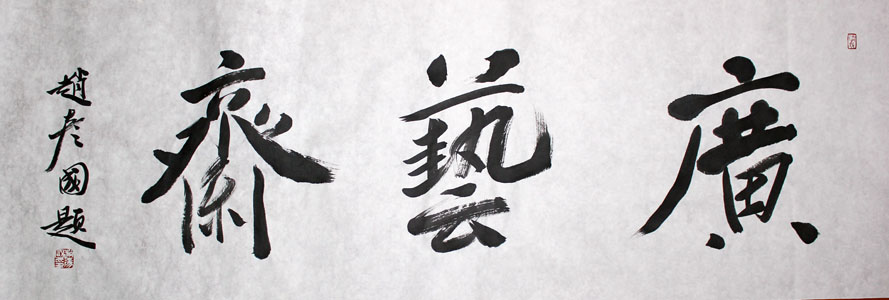 廣藝齋
趙彥國題